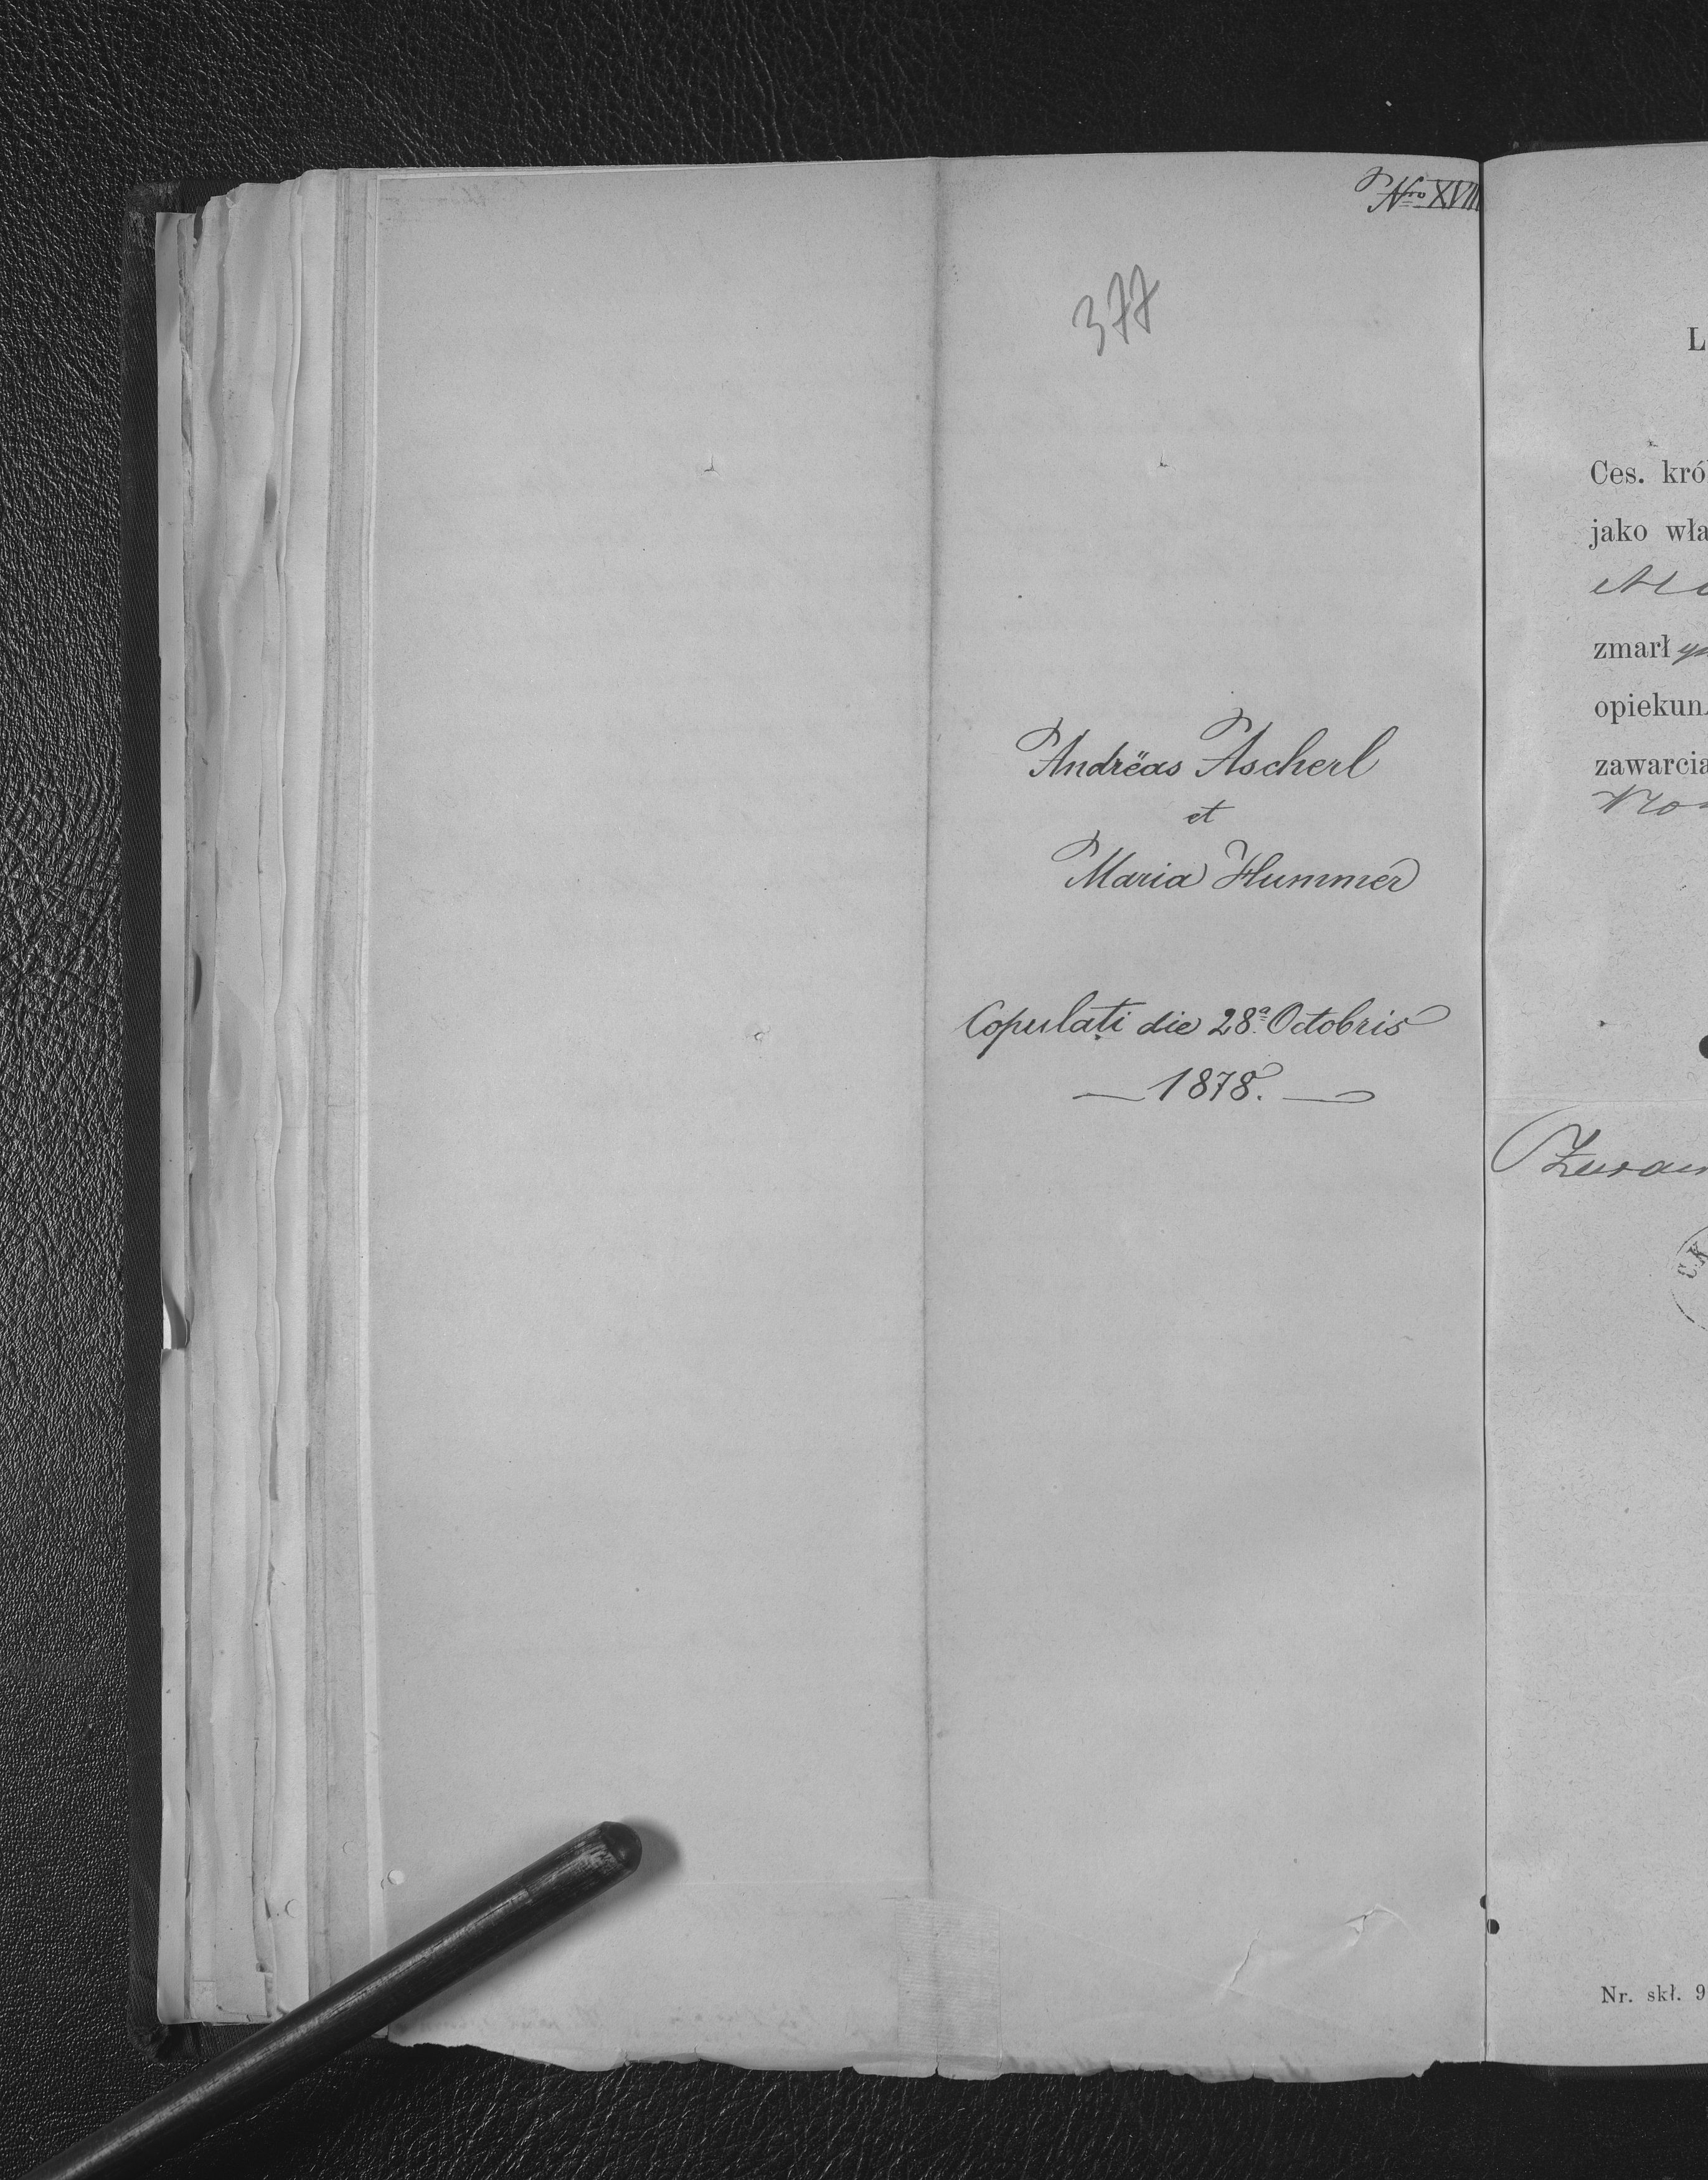 Nro XVIII
377
Andrëas Ascherl
et
Maria Hummer
Copulati die 28a Octobris
— 1878. —
L
Ces. kró
jako wła
zmarł
opiekun
zawarcia
C.K
Nr. skł. 9